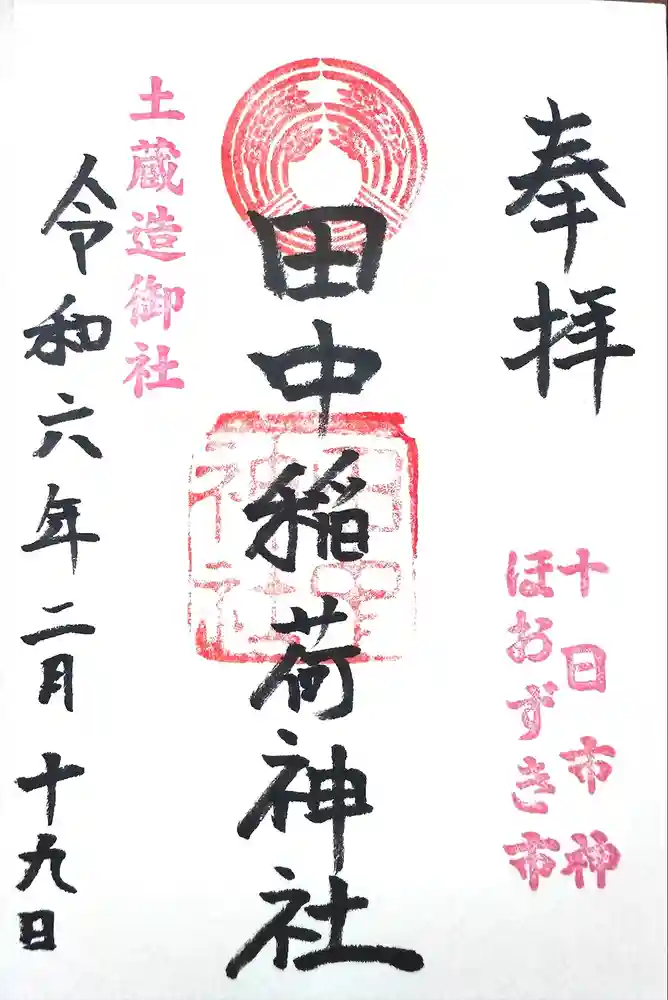 奉拝
十日市神
ほおずき市
田中稲荷神社
土蔵造御社
令和六年二月十九日